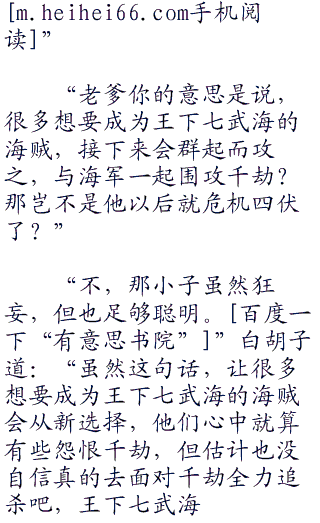 [m.heihei66.com手机阅
读]”
“老爹你的意思是说，
很多想要成为王下七武海的
海贼，接下来会群起而攻
之，与海军一起围攻千劫？
那岂不是他以后就危机四伏
了？”
“不，那小子虽然狂
妄，但也足够聪明。[百度一
下“有意思书院”]”白胡子
道：“虽然这句话，让很多
想要成为王下七武海的海贼
会从新选择，他们心中就算
有些怨恨千劫，但估计也没
自信真的去面对千劫全力追
杀吧，王下七武海